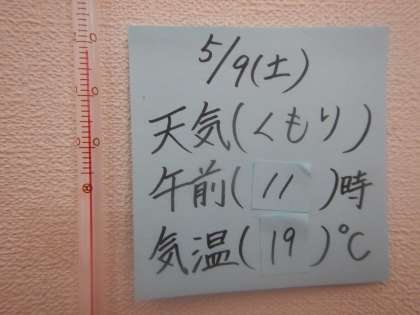 5/9(土)
天気(くもり)
午前(11)時
気温(19)℃